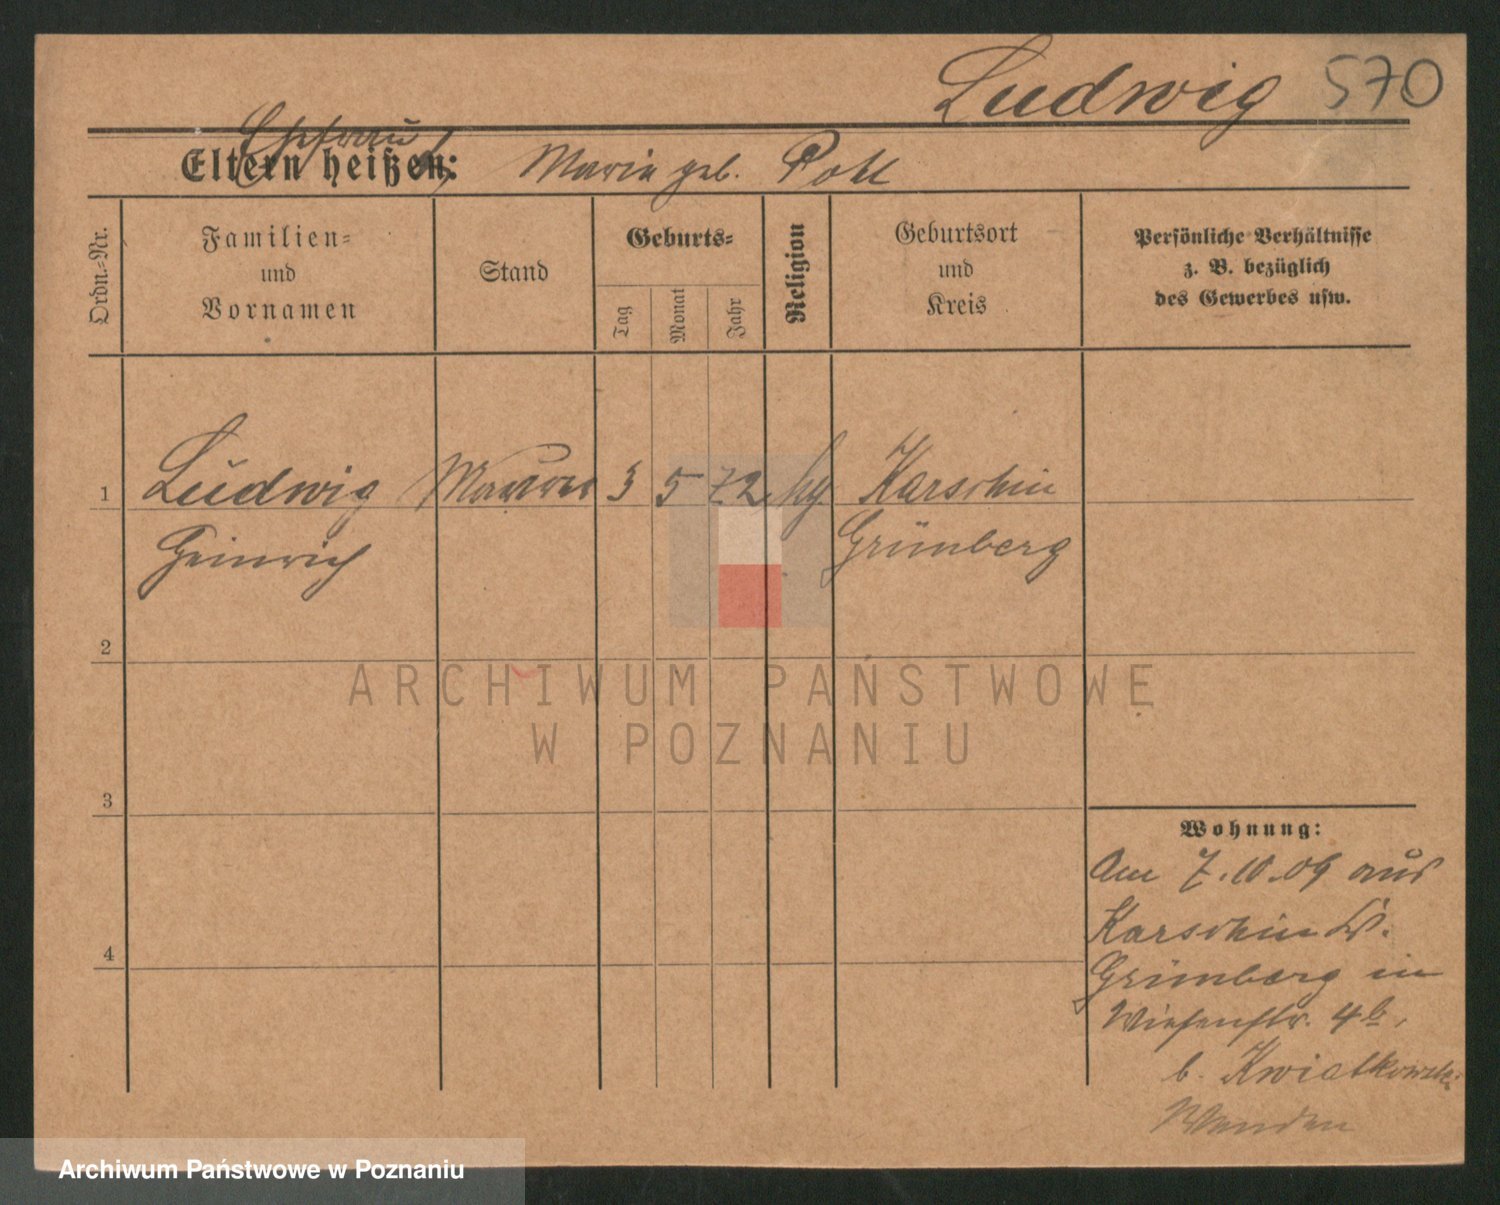 Ludwig 570
Ehefrau
Eltern heißen: Maria geb. Pohl
Ordn.=Nr.
Familien=
und
Vornamen
Stand
Geburts=
Tag
Monat
Jahr
Religion
Geburtsort
und
Kreis
Persönliche Verhältnisse
z. B. bezüglich
des Gewerbes usw.
1 Ludwig Maurer 3 5 72 Karschin
Heinrich Grünberg
2
3
4
Wohnung:
Am 7.10.09 aus
Karschin Kr.
Grünberg in
Wiesenstr. 4b,
b. Kwiatkowski
ARCHIWUM PAŃSTWOWE
W POZNANIU
Archiwum Państwowe w Poznaniu